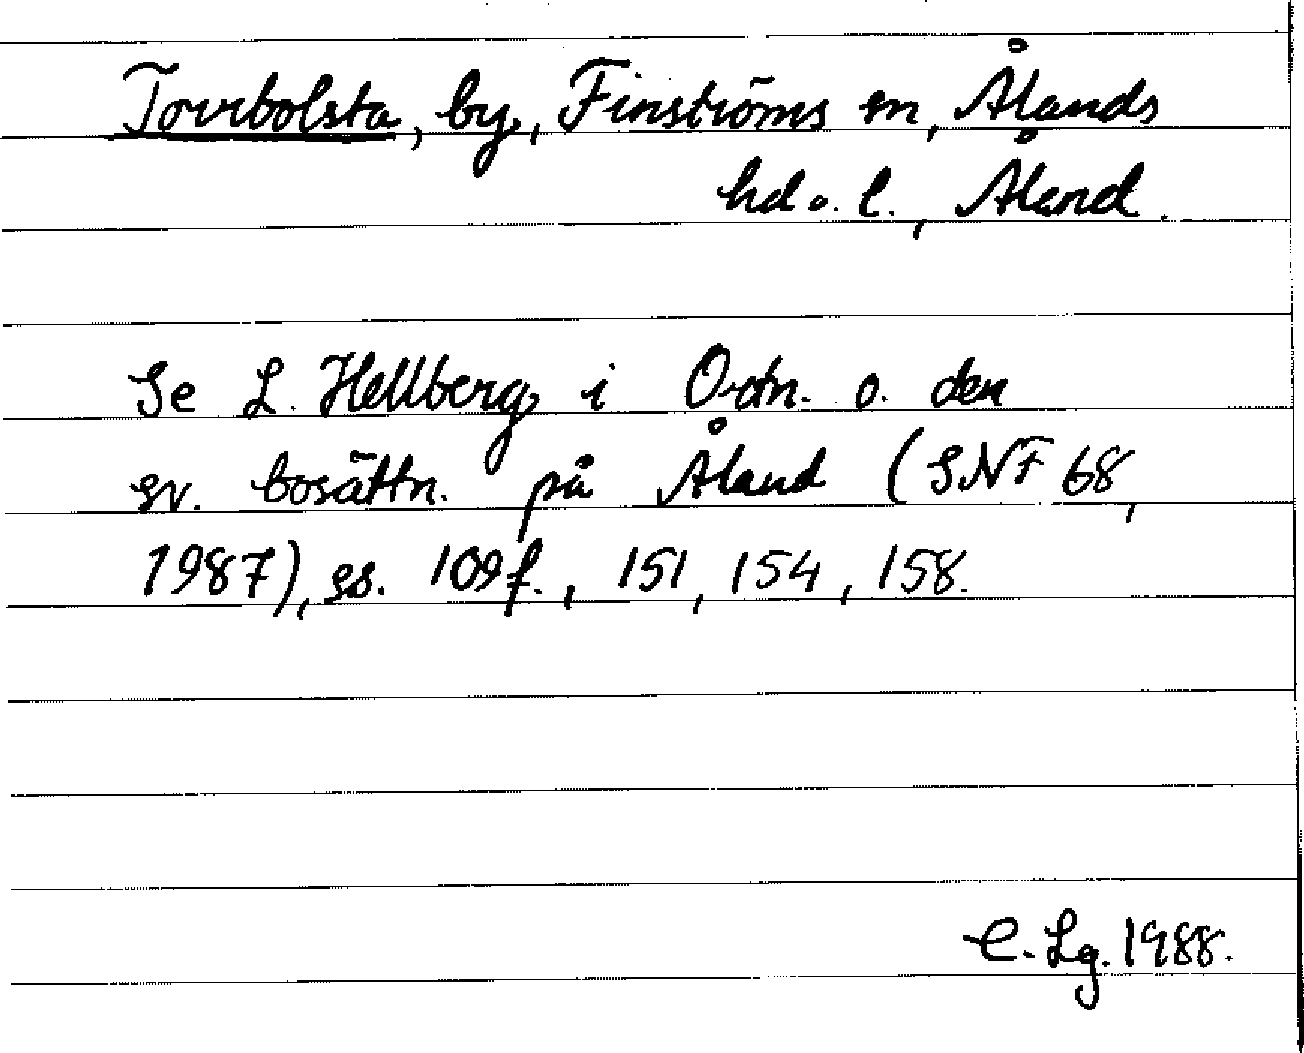 Torrbolsta, by, Finströms sn, Ålands
hd o. l., Åland.
Se L. Hellberg i Ortn. o. den
sv. bosättn. på Åland (SNF 68,
1987), ss. 109 f., 151, 154, 158.
C. Lg. 1988.